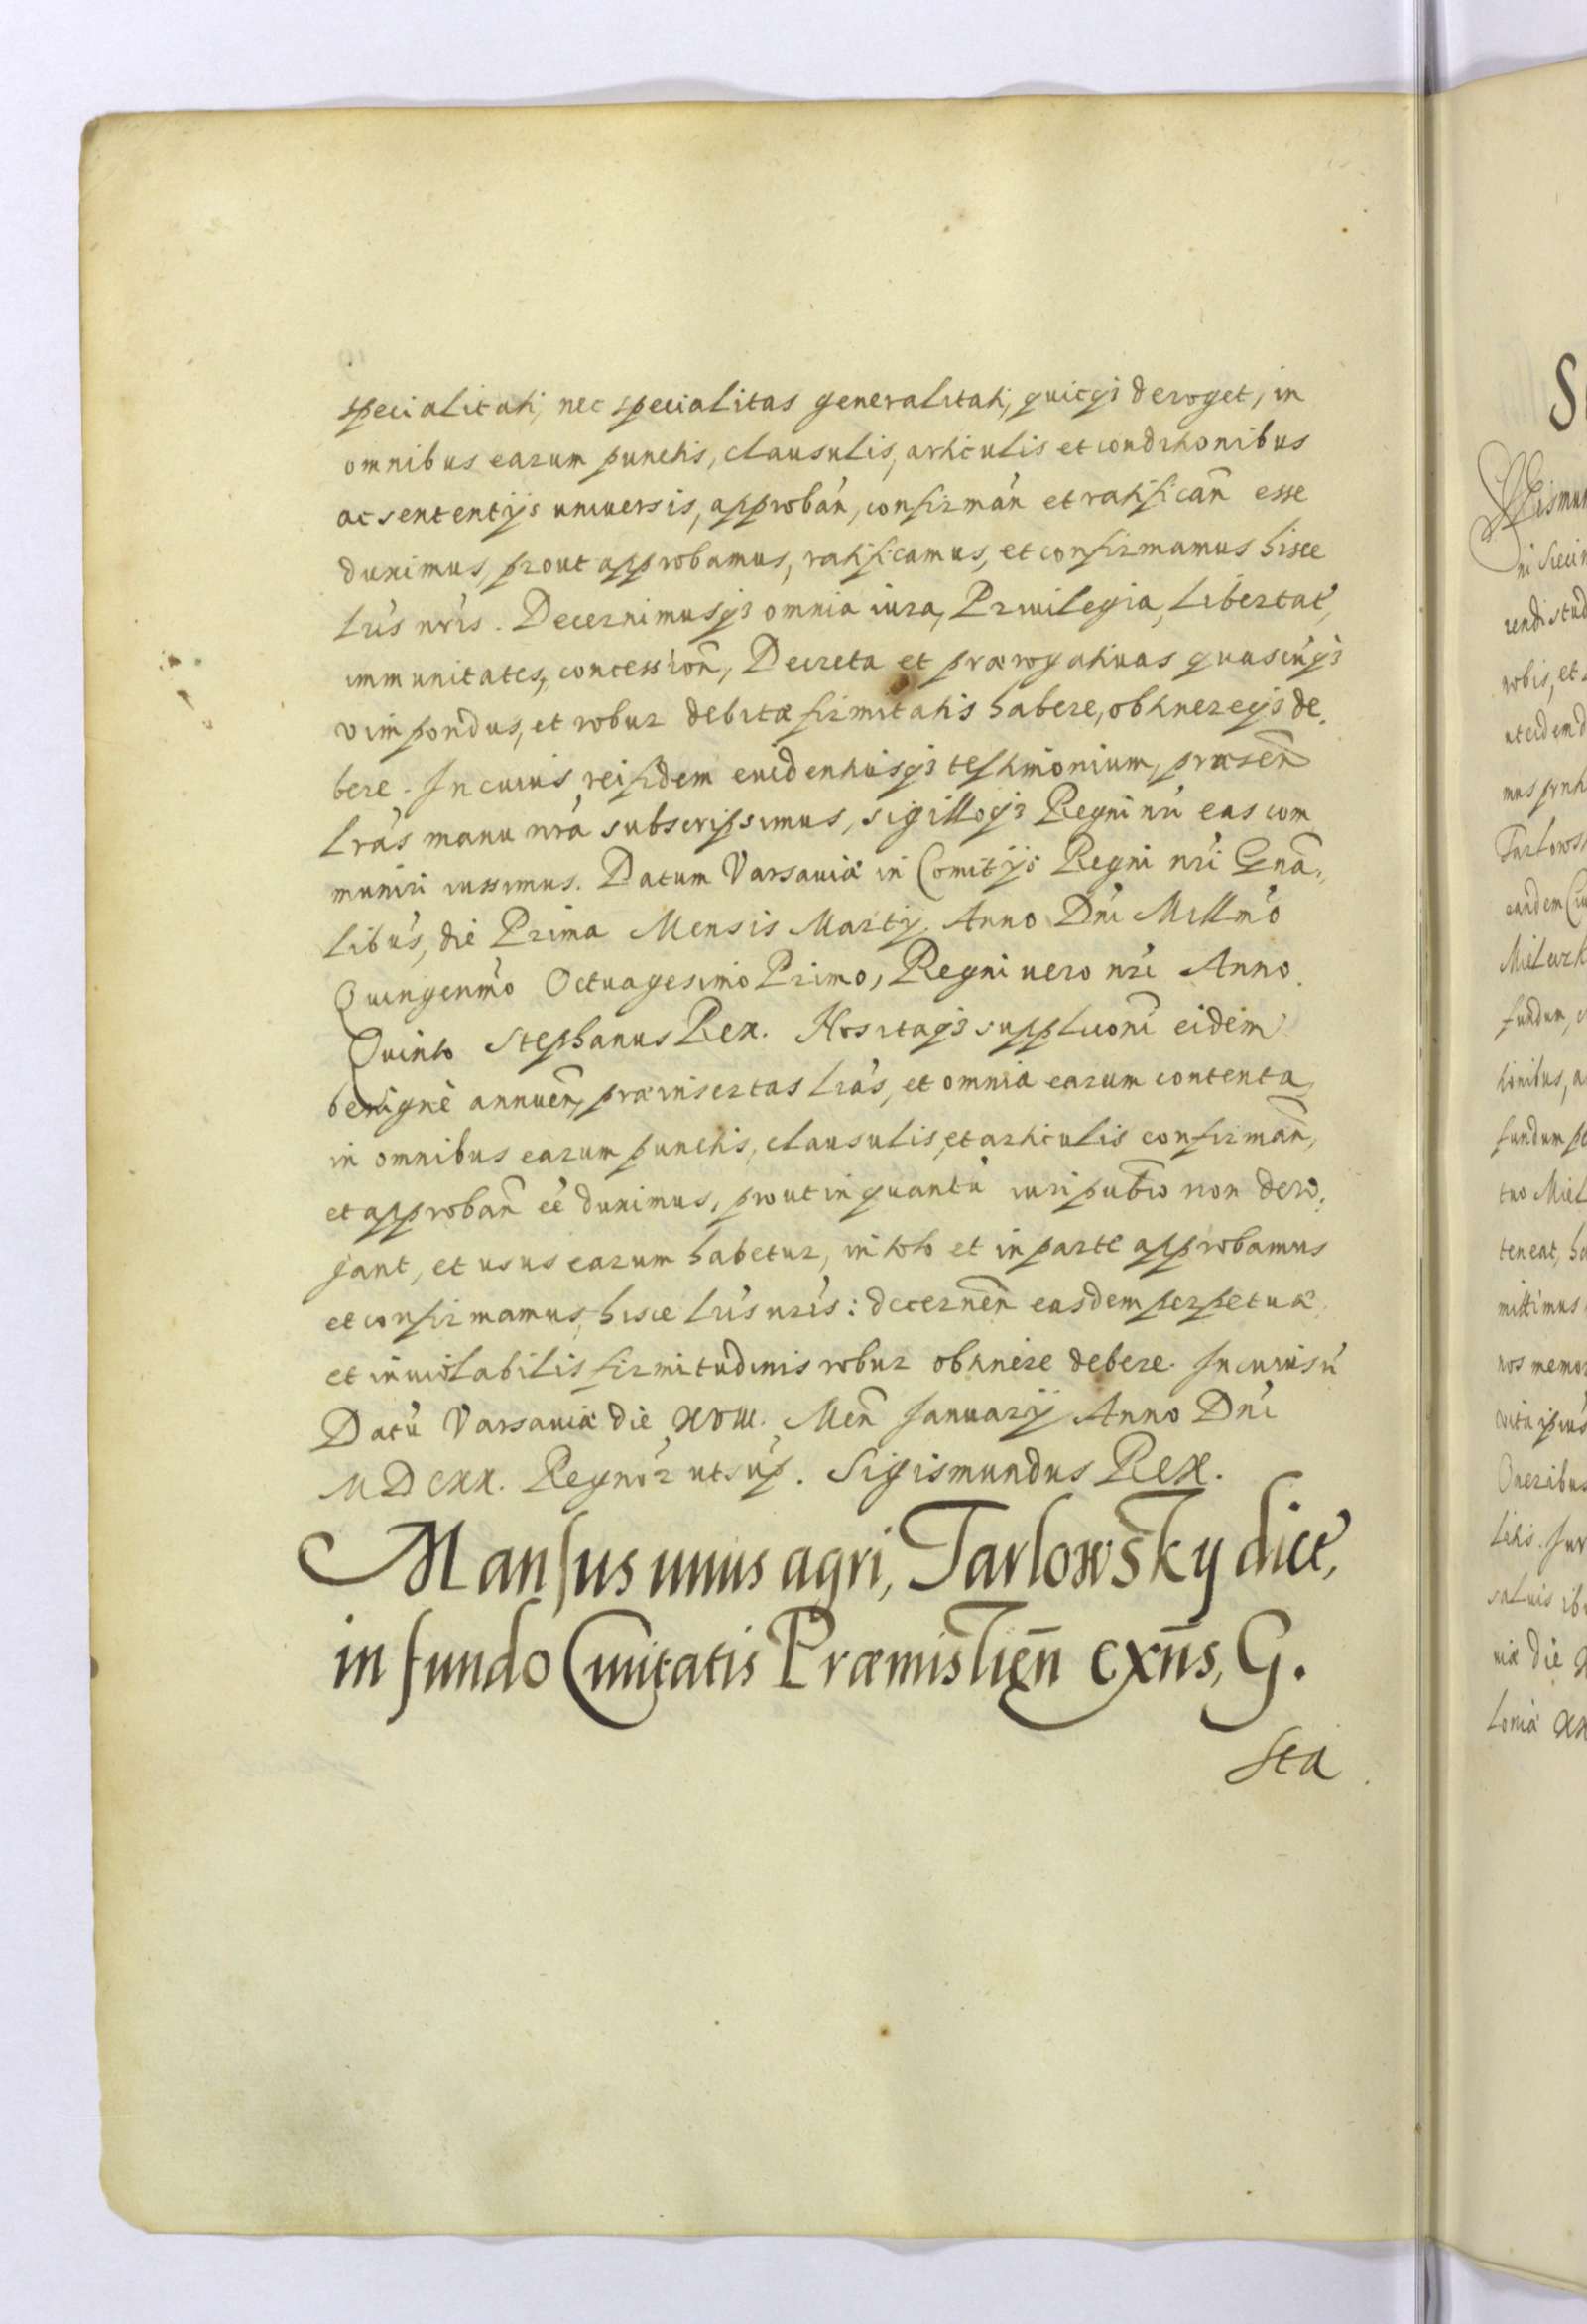 specialitati, nec specialitas generalitati, quicq3 deroget, in
omnibus earum punctis, clausulis, articulis et conditionibus
ac sententijs uniuersis, approbañ, confirmañ et ratificañ esse
duximus, prout approbamus, ratificamus, et confirmamus hisce
Lris nris. Decernimusq3 omnia iura, Priuilegia, Libertat,
immunitates, concessioñ, Decreta et prærogatiuas quascunq3
vim pondus, et robur debitæ firmitatis habere, obtinereq3 de,
bere. In cuius rei fidem euidentiusq3 testimonium, præseñ
Lras manu nra subscripsimus, sigilloq3 Regni nri eas com
muniri iussimus. Datum Varsauiæ in Comitijs Regni nri Gña,
libus, die Prima Mensis Martij. Anno Dni Millmo
Quingenmo Octuagesimo Primo, Regni uero nri Anno
Quinto Stephanus Rex. Nos itaq3 suppluoni eidem
benigne annueñ, præinsertas Lras, et omnia earum contenta,
in omnibus earum punctis, clausulis, et articulis confirmañ,
et approbañ eē duximus, prout in quantu iuri publico non dero,
gant, et usus earum habetur, in toto et in parte approbamus
et confirmamus, hisce Lris nris: decerneñ easdem perpetuæ
et inuiolabilis firmitudinis robur obtinere debere. In cuius ū
Datu Varsauiæ die XVIII. Meñ Januarij Anno Dni
MDCXX. Regnor ut sup. Sigismundus Rex.
Mansus unus agri, Tarlowsky dict,
in fundo Ciuitatis Præmislieñ exñs, G.
Sta